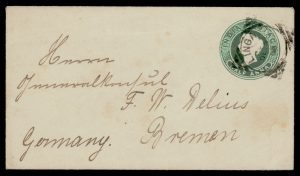 INDIA POSTAGE
HALF ANNA
Herrn
Generalkonsul
F. W. Delius
Germany. Bremen